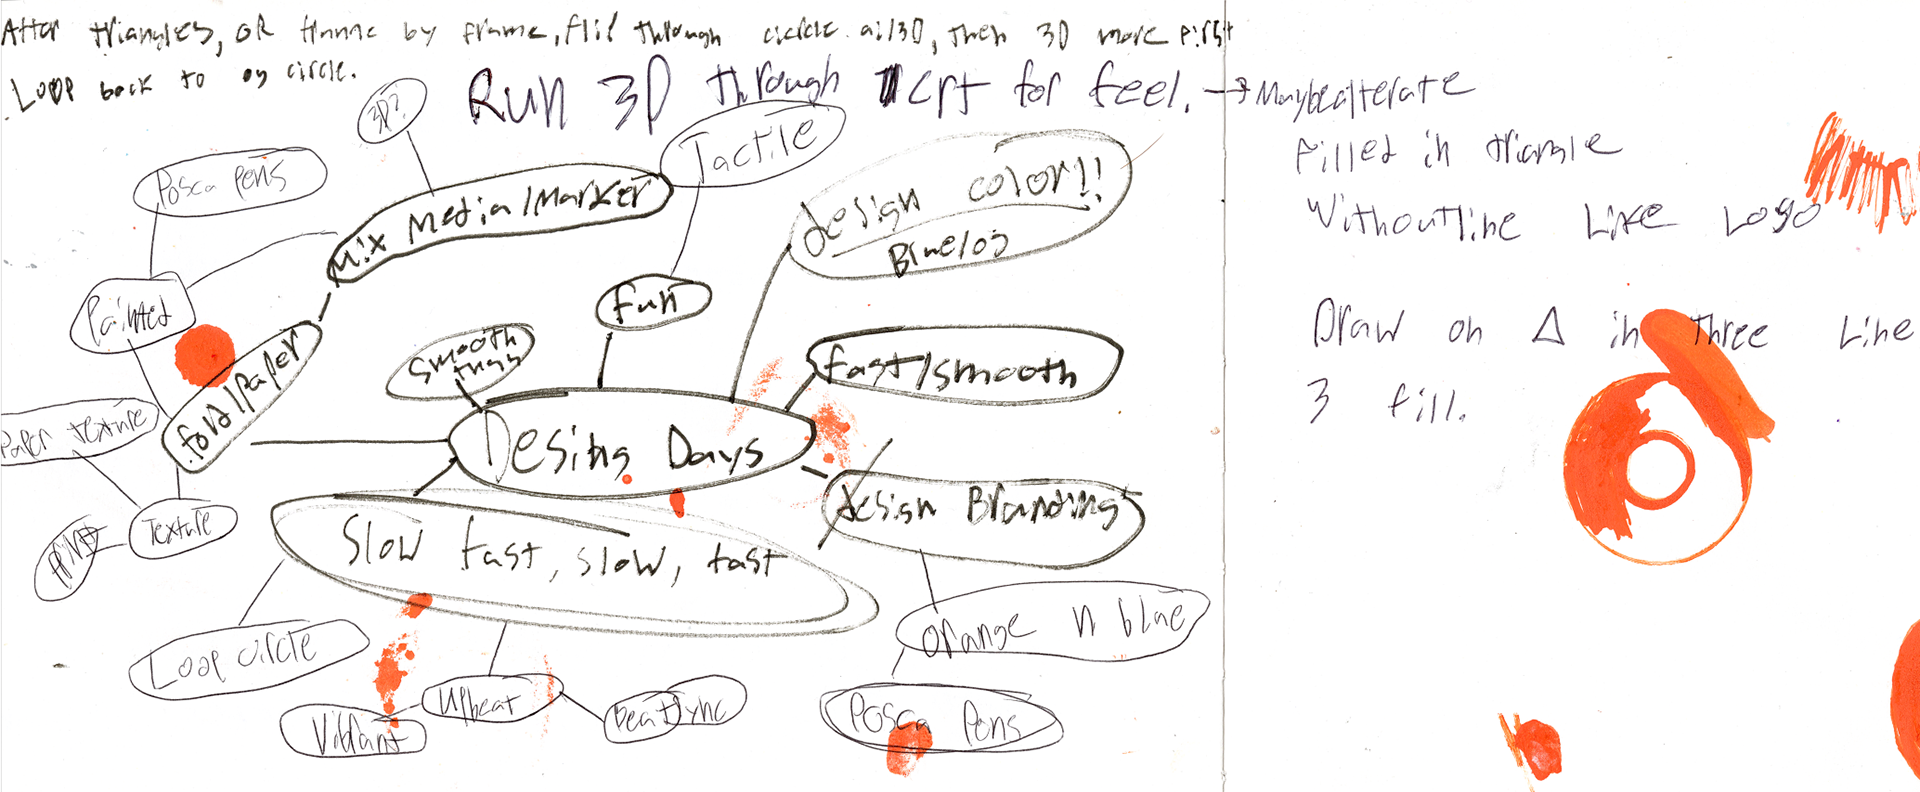 After triangles, OR frame by frame, flip through circle all 3D, then 3D more first
Loop back to og circle.
Run 3D through crt for feel. → Maybe alterate
Filled in triangle
Without line Like Logo
Draw on Δ in three Line
3 fill.
3D?
Tactile
Posca Pens
Mix Media/Marker
design color!!
Blue/og
Painted
Fun
fold/Paper
Smooth
thgg
fast/smooth
Paper texture
Desing Days
design Branding
Texture
Slow fast, slow, fast
Orange n blue
Loop circle
Upbeat
Beat sync
Vibrant
Posca Pens